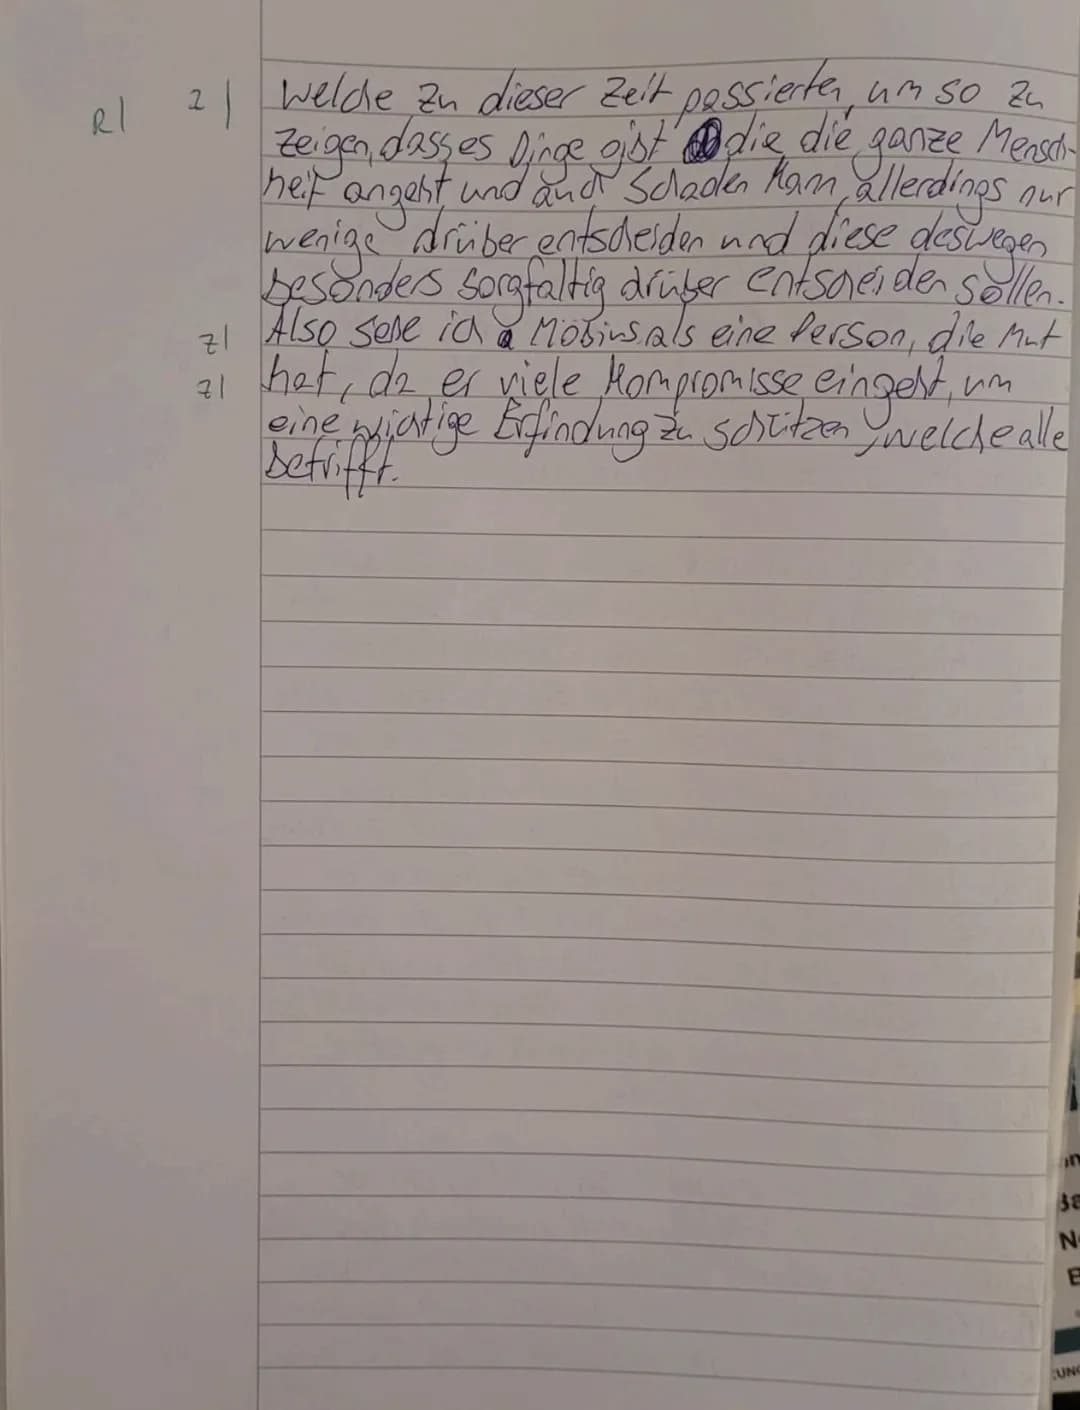 R| 2| Welche zu dieser Zeit passierten, um so zu
zeigen, dass es Dinge gibt die die ganze Mensch-
heit angeht und auch Schaden kann, allerdings nur
wenige drüber entscheiden und diese deswegen
besonders sorgfaltig drüber entscheiden sollen.
z| Also sehe ich Möbius als eine Person, die Mut
z| hat, da er viele Kompromisse eingeht, um
eine wichtige Erfindung zu schützen, welche alle
betrifft.
N
E